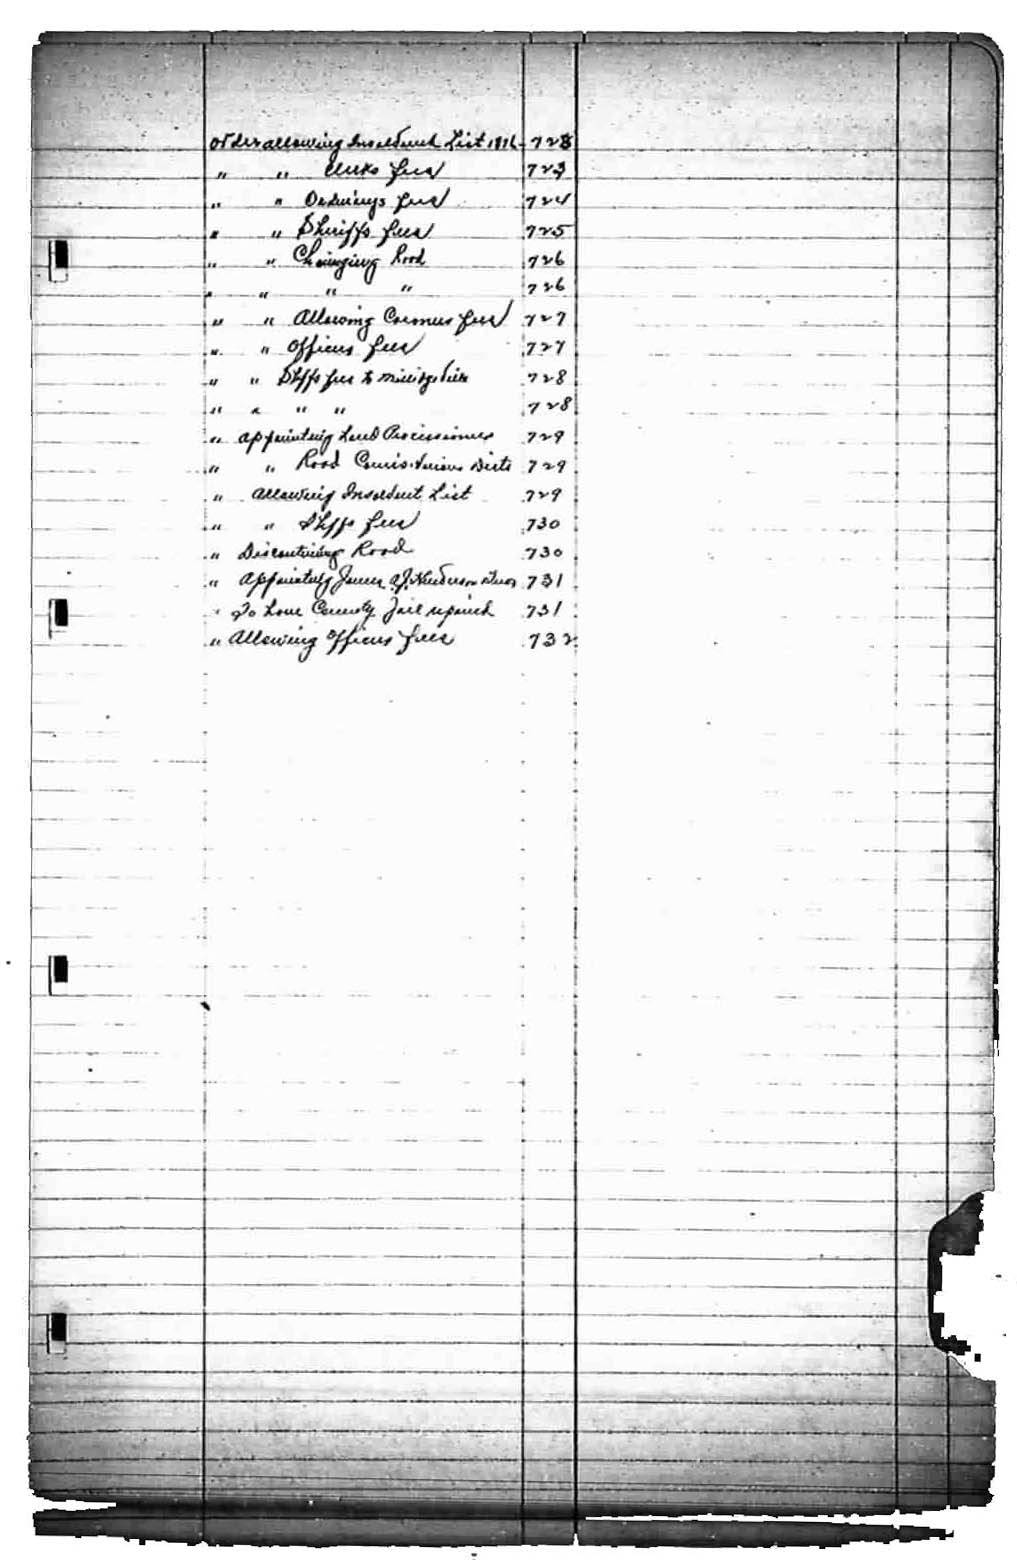 Order allowing Insolvent List 1896 723
" " Clerks fees 723
" " Ordinarys fees 724
" " Sheriffs fees 725
" " Changing Road 726
" " " " 726
" " Allowing Coroners fees 727
" " Officers fees 727
" " Shffs fees to Milledgeville 728
" " " " 728
" appointing Land Processioners 729
" " Road Comis. Various Dists 729
" allowing Insolvent List 729
" " Shffs fees 730
" Discontinuing Road 730
" Appointing James Henderson 731
" To have County Jail repaired 731
" Allowing Officers fees 732